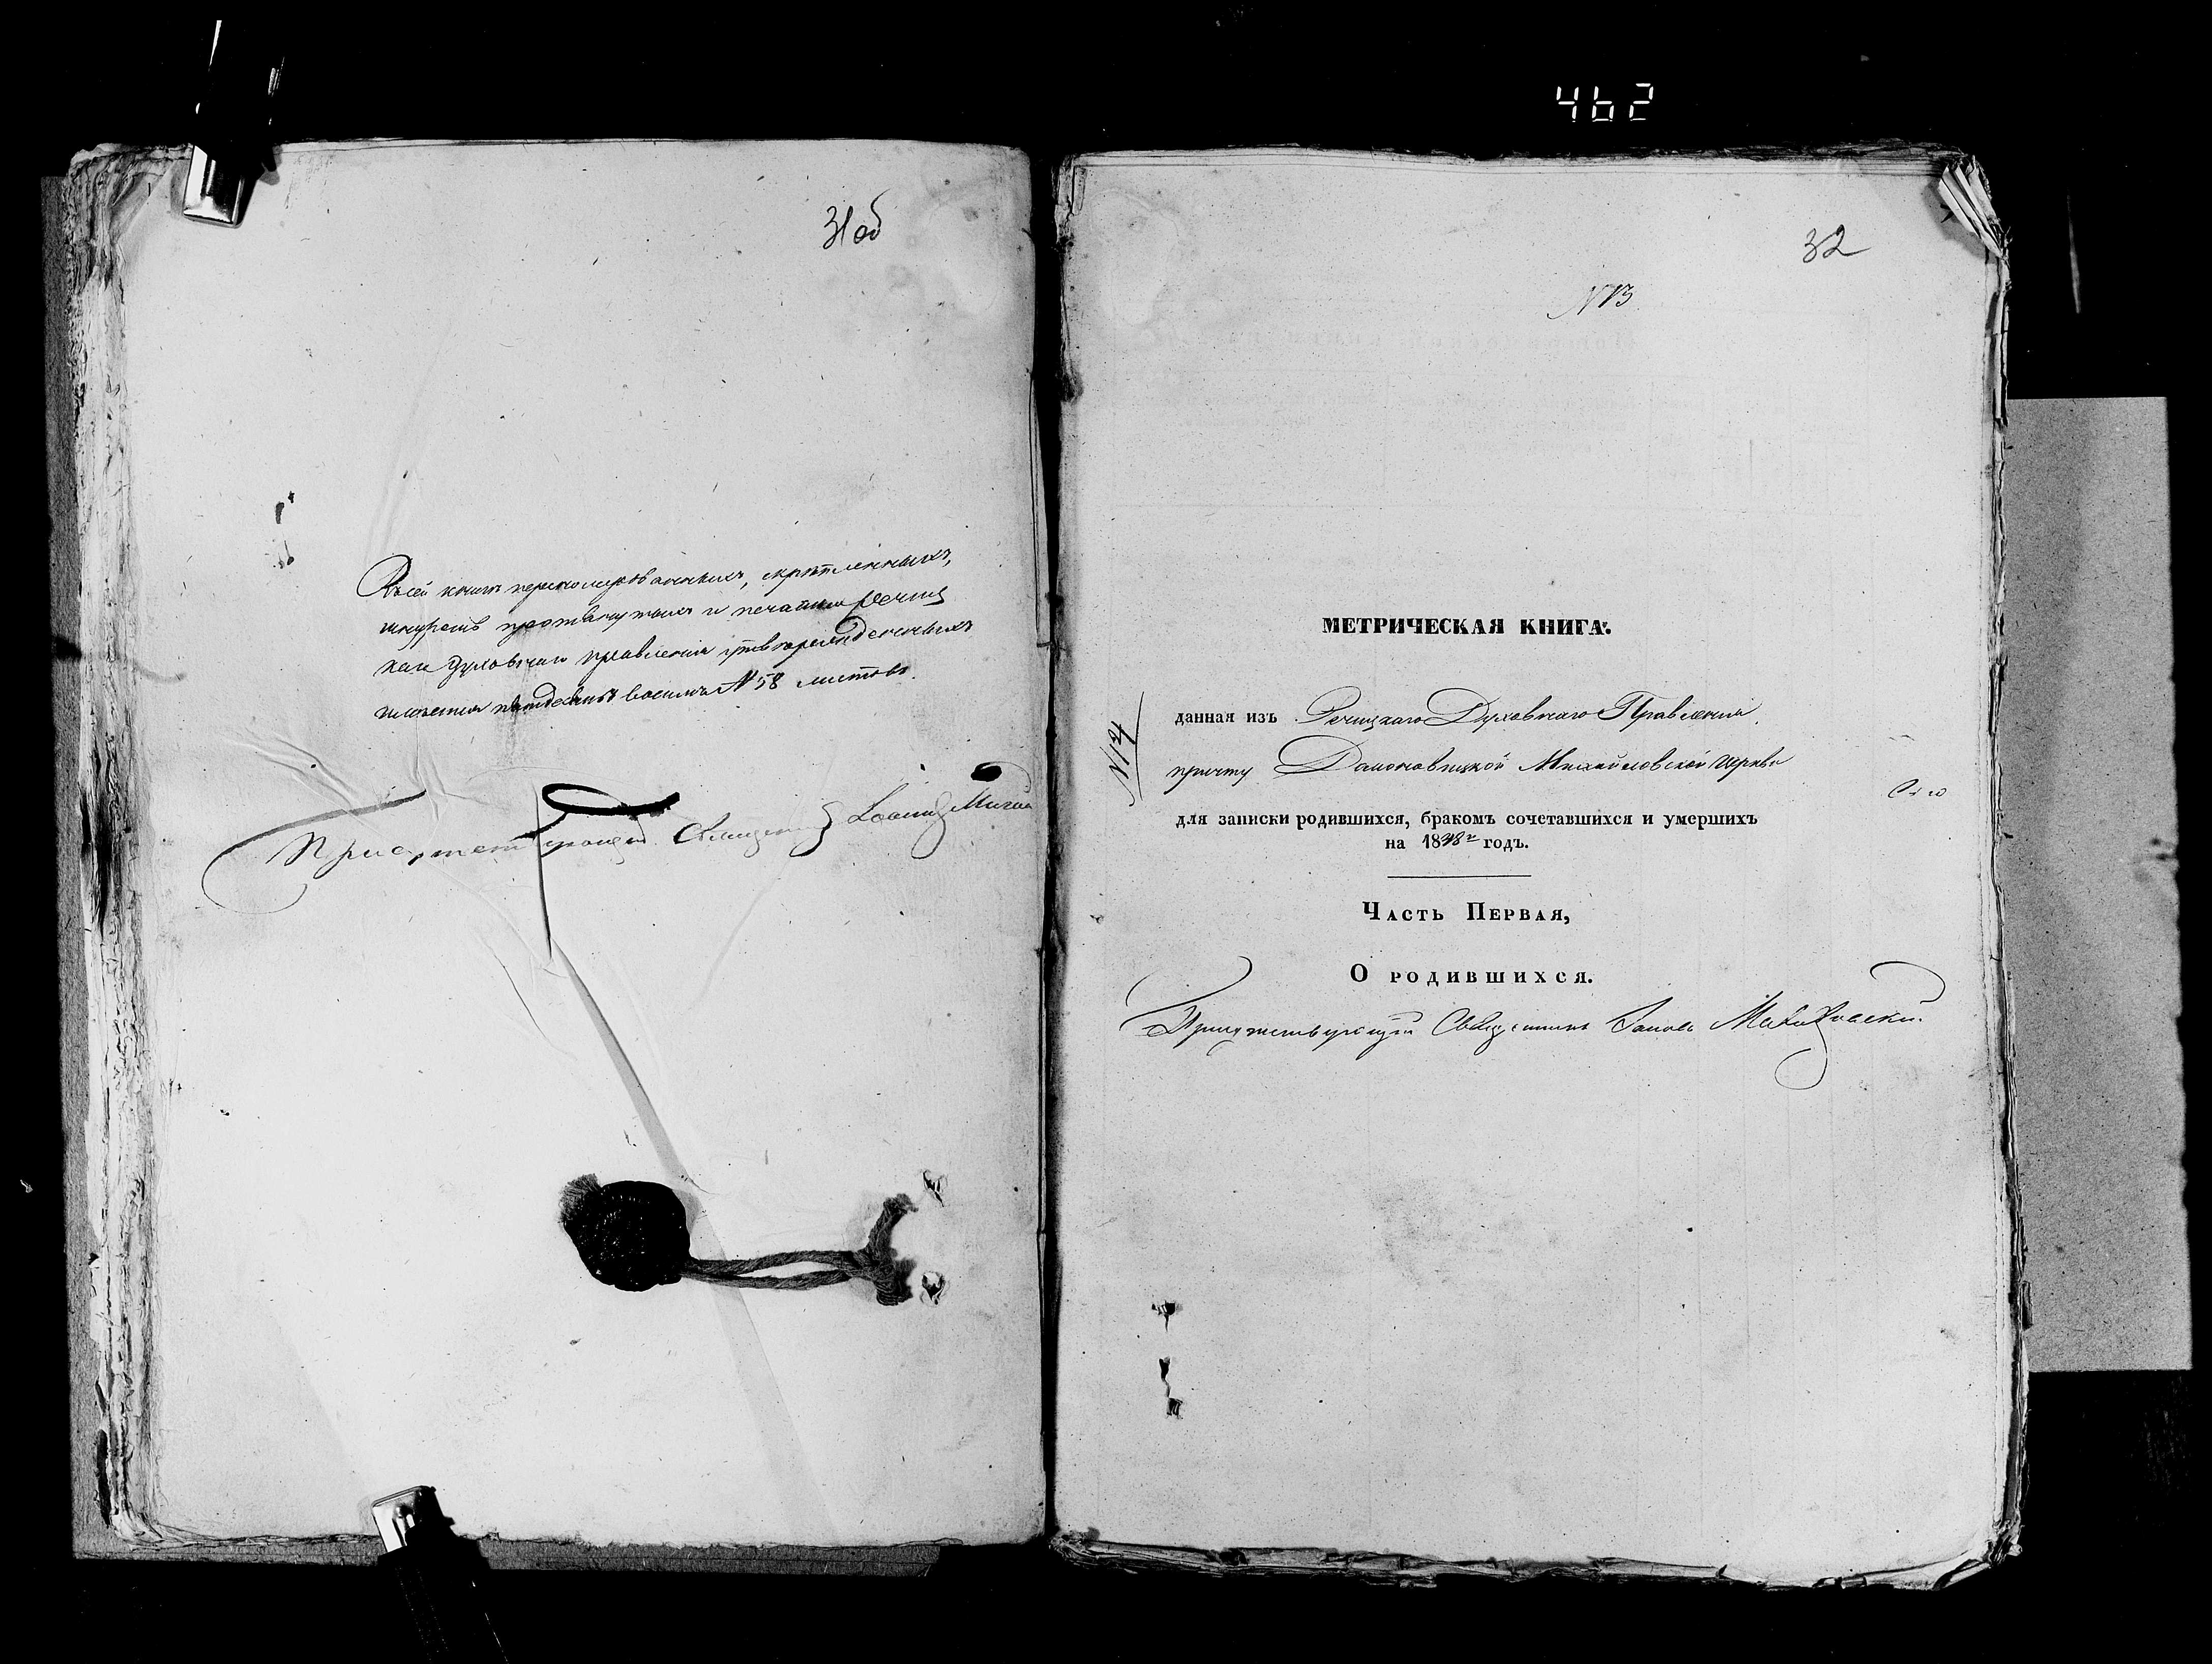 462
31 об
Въ сей книгѣ перенумерованныхъ, скрѣпленныхъ,
шнуромъ протянутыхъ и печатью Речиц
каго Духовнаго Правленія утвержденныхъ
числится пятьдесятъ восемь № 58 листовъ.
Присутствующій Священникъ Іоаннъ
32
№ 13
МЕТРИЧЕСКАЯ КНИГА.
№ 14
данная изъ Речицкаго Духовнаго Правленія
причту Домановицкой Михайловской церкви
для записки родившихся, бракомъ сочетавшихся и умершихъ
на 1838 годъ.
Часть Первая,
О родившихся.
Присутствующій Священникъ